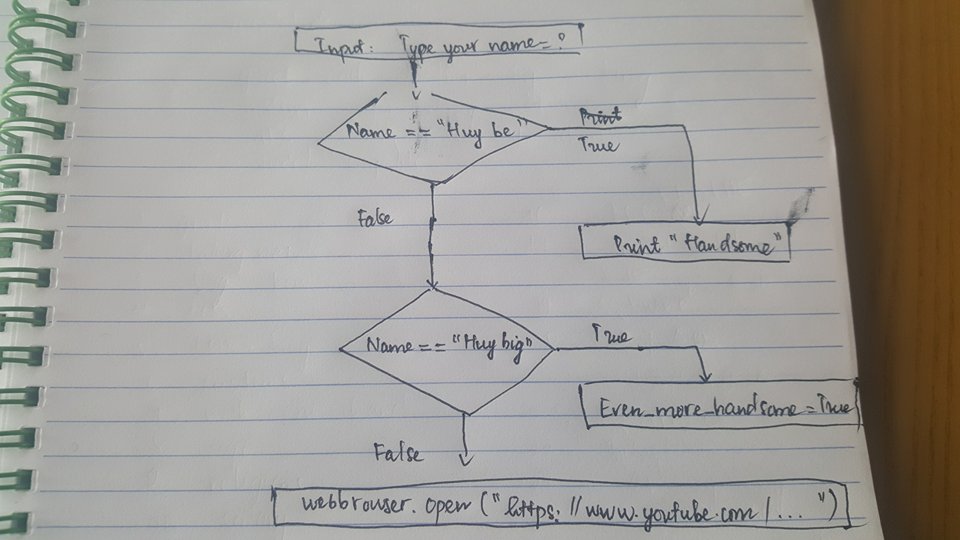 Input: Type your name = ?
Name == "Huy be"
Print
True
False
Print "Handsome"
Name == "Huy big"
True
Even_more_handsome = True
False
webbrowser.open ("https://www.youtube.com/... ")